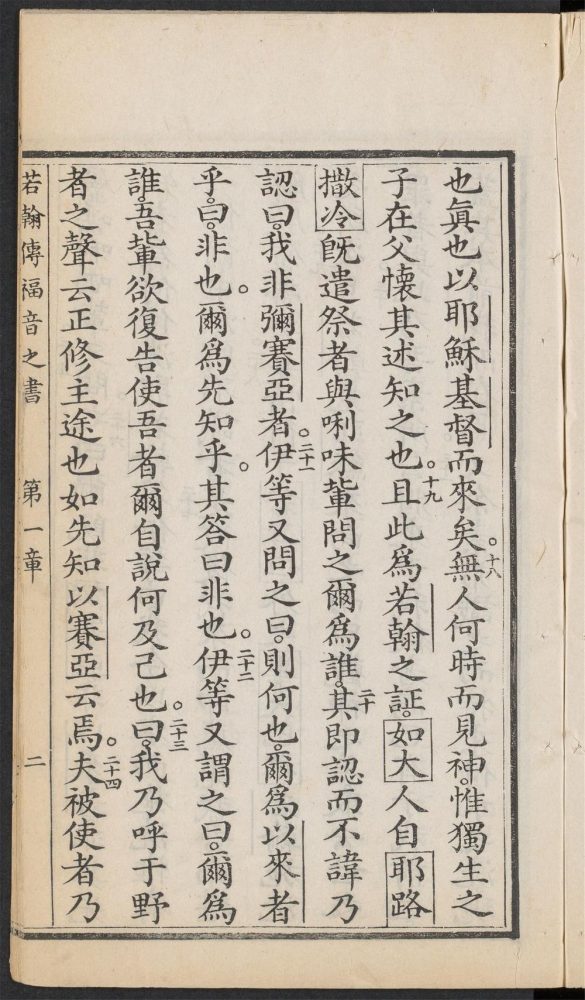 也眞也以耶穌基督而來矣。十八無人何時而見神。惟獨生之
子在父懷其述知之也。十九且此爲若翰之証。如大人自耶路
撒冷旣遣祭者與唎味軰問之爾爲誰。二十其即認而不諱乃
認曰。我非彌賽亞者。二十一伊等又問之曰。則何也。爾爲以來者
乎。曰。非也。爾爲先知乎。其答曰非也。二十二伊等又謂之曰。爾爲
誰。吾軰欲復告使吾者爾自說何及己也。二十三曰。我乃呼于野
者之聲云正修主途也如先知以賽亞云焉。二十四夫被使者乃
若翰傳福音之書 第一章 二